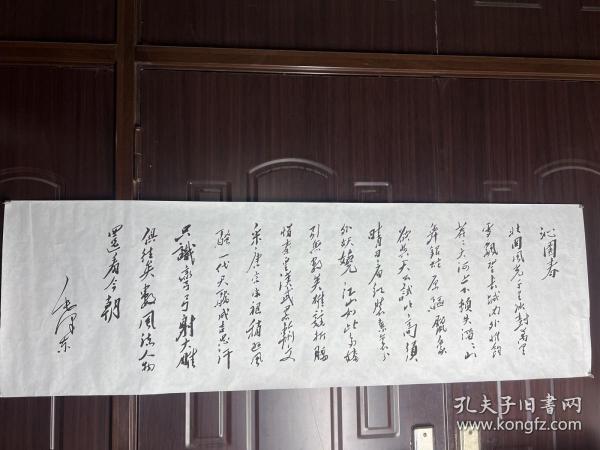 沁园春
北国风光千里冰封万里
雪飘望长城内外惟余
莽莽大河上下顿失滔滔山
舞银蛇原驰蜡象
欲与天公试比高须
晴日看红装素裹分
外妖娆江山如此多娇
引无数英雄竞折腰
惜秦皇汉武略输文
采唐宗宋祖稍逊风
骚一代天骄成吉思汗
只识弯弓射大雕
俱往矣数风流人物
还看今朝
毛泽东
孔夫子旧书网
www.kongfz.com